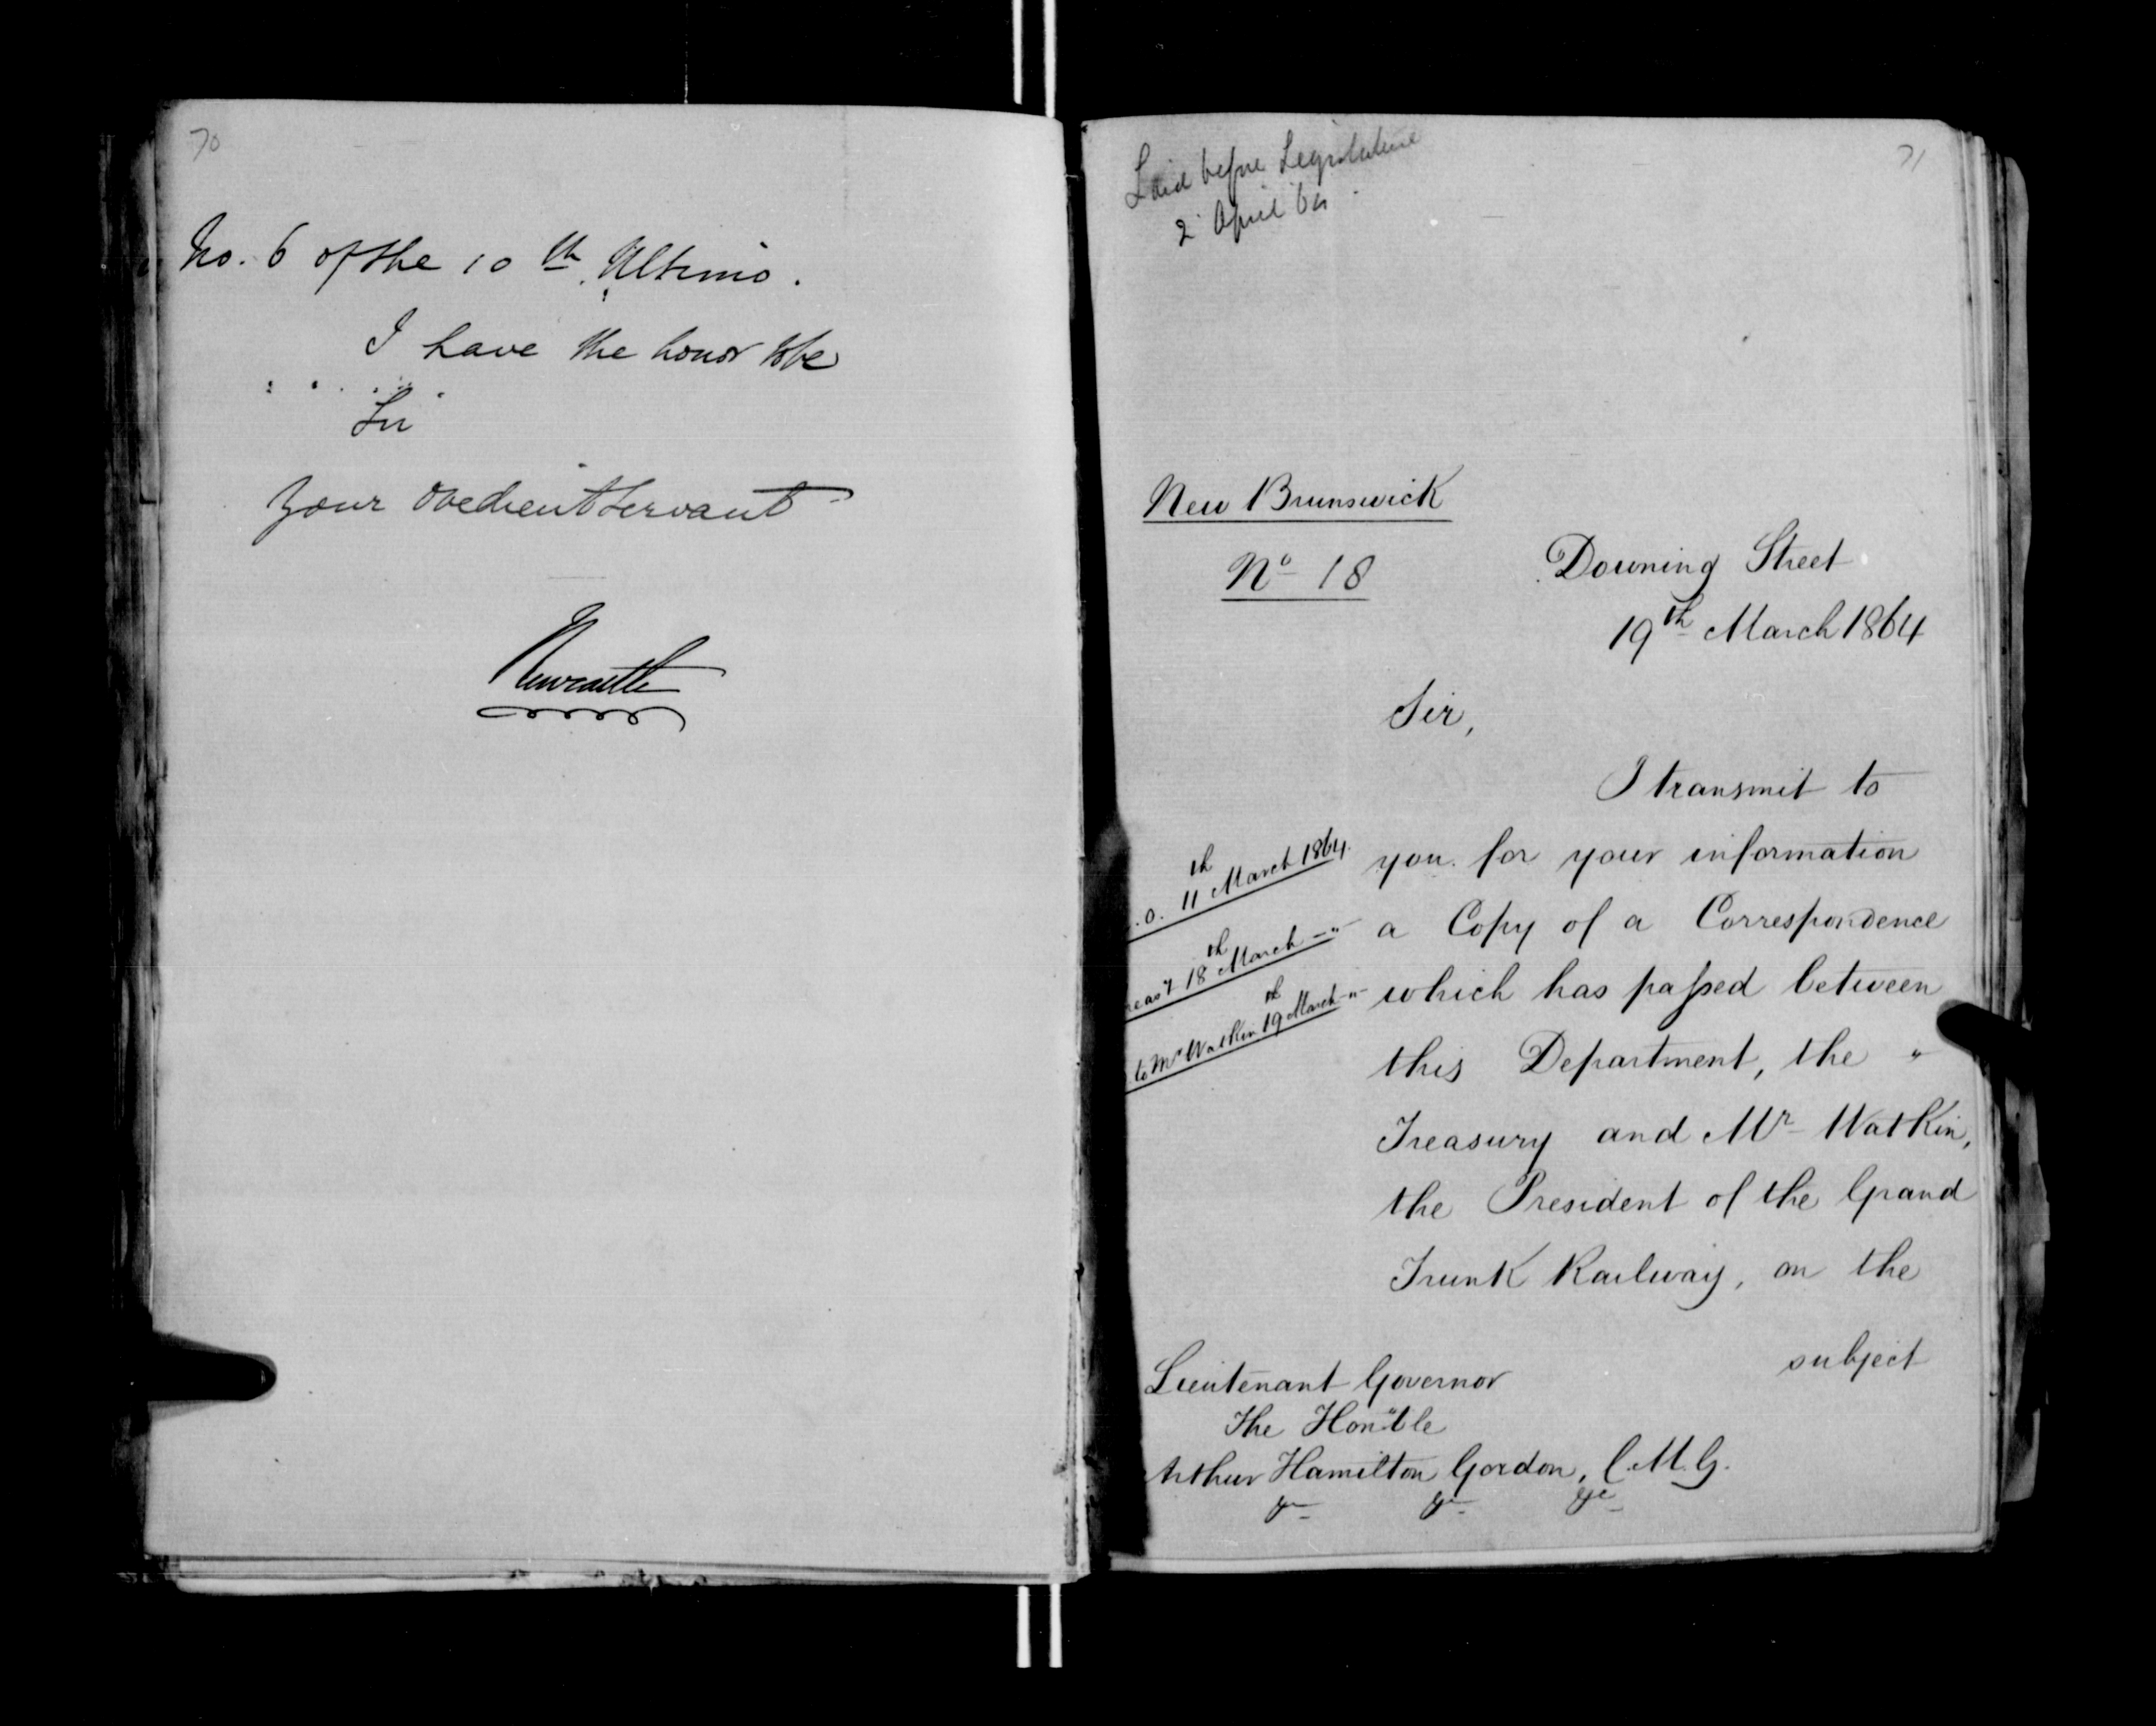 70
No. 6 of the 10th Ultimo.
I have the honor to be
Sir
Your obedient Servant
Newcastle
71
Laid before Legislature
2 April 64
New Brunswick
No 18
Downing Street
19th March 1864
Sir,
I transmit to
you for your information
a Copy of a Correspondence
which has passed between
this Department, the "
Treasury and Mr Watkin,
the President of the Grand
Trunk Railway, on the
subject
.O. 11th March 1864.
reasy 18th March — "
to Mr Watkin 19th March "
Lieutenant Governor
The Honble
Arthur Hamilton Gordon, C.M.G.
&c &c &c